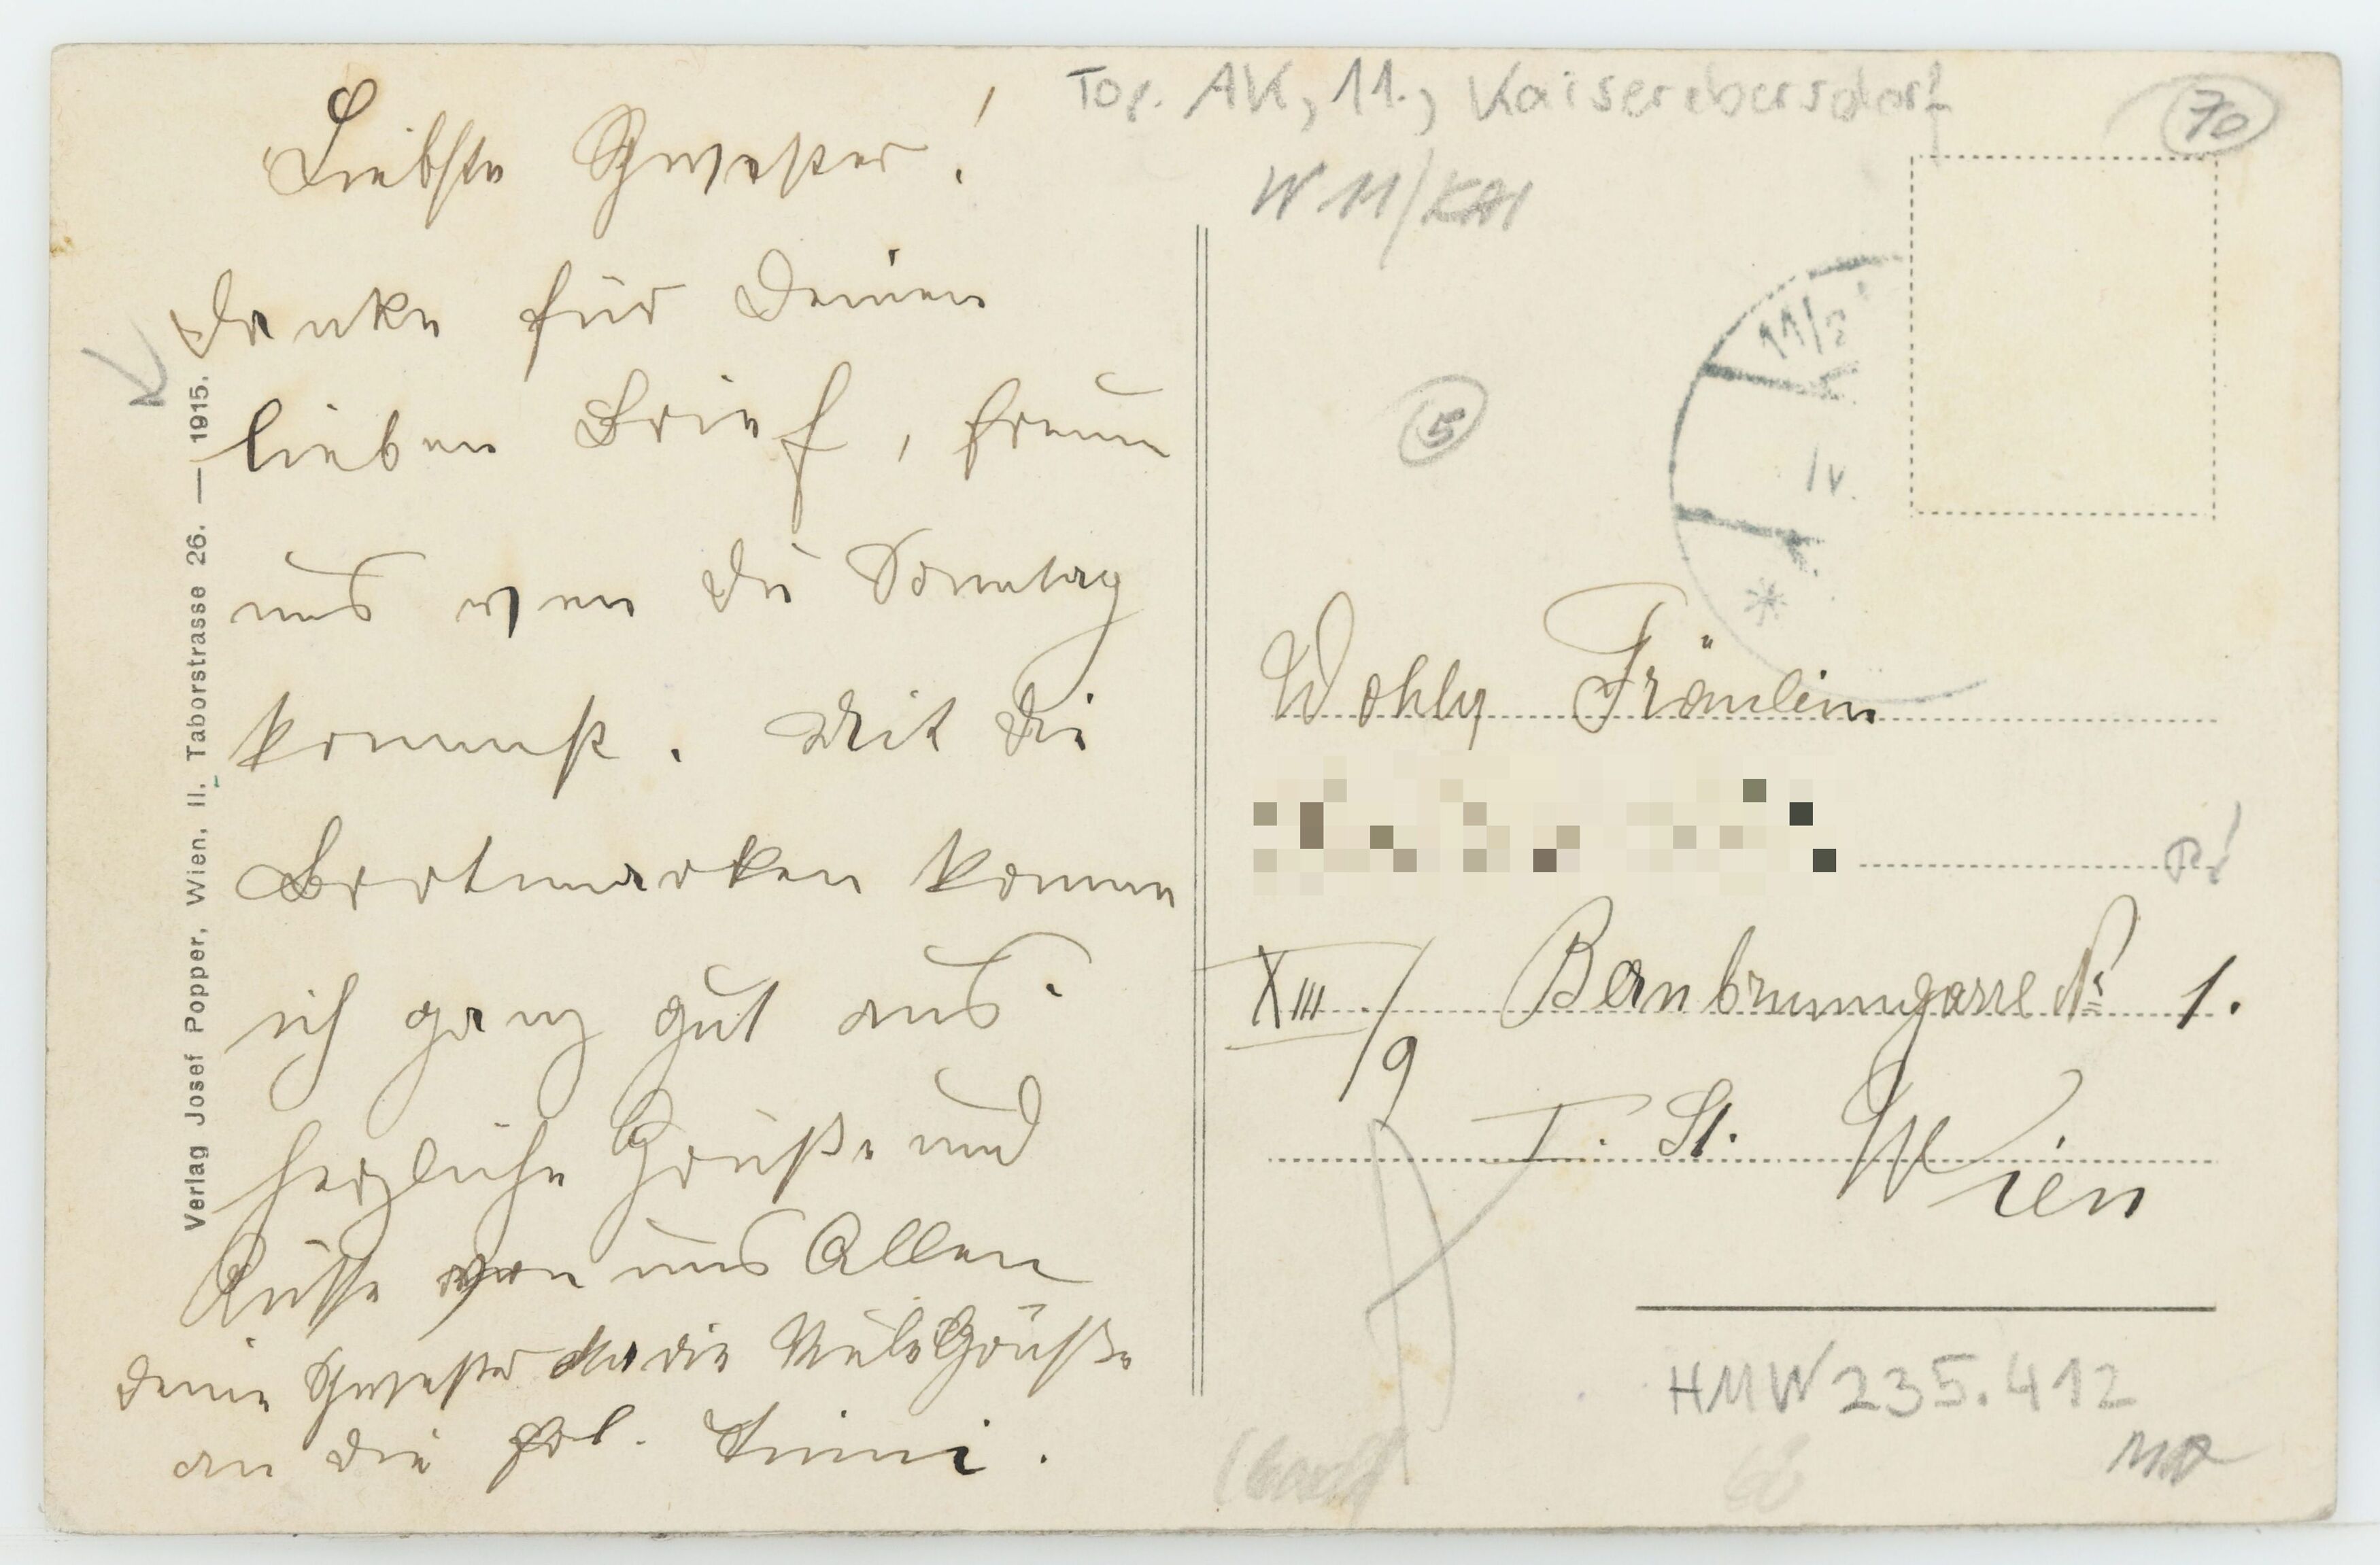 Liebste Schwester!
danke für Deinen
lieben Brief, freuen
uns wen du Sonntag
kommst. Mit die
Brotmarken komme
ich ganz gut aus.
herzliche Grüße und
Küsse von uns Allen
deine Schwester Marie Viele Grüße
an die Frl. Mimi.
Verlag Josef Popper, Wien, II. Taborstrasse 26. — 1915.
Top. AK, 11., Kaiserebersdorf
70
W 11/KAI
5
IV.
Wohlg Fräulein
XIII/9 Beanbrunngasse № 1.
I. St. Wien
HMW 235.412